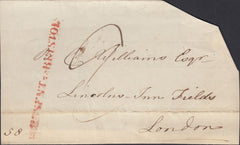 Williams Esqr
Lincolns Inn Fields
London
58